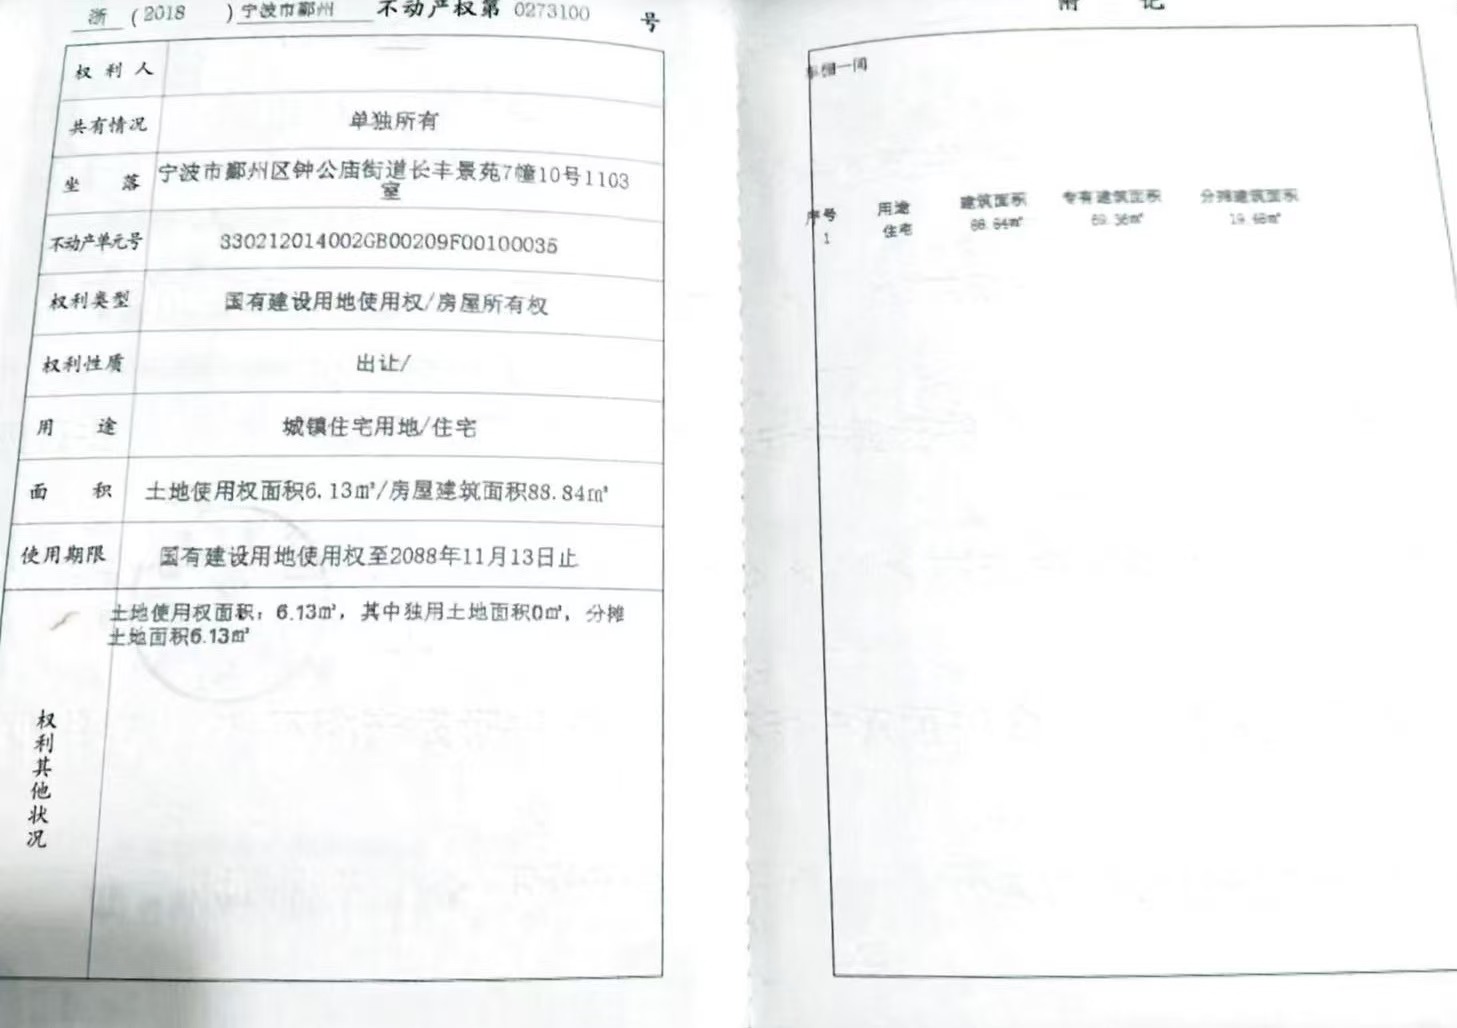 浙 (2018 ) 宁波市鄞州 不动产权第 0273100 号
权利人
共有情况 单独所有
坐落 宁波市鄞州区钟公庙街道长丰景苑7幢10号1103
室
不动产单元号 330212014002GB00209F00100035
权利类型 国有建设用地使用权/房屋所有权
权利性质 出让/
用途 城镇住宅用地/住宅
面积 土地使用权面积6.13㎡/房屋建筑面积88.84㎡
使用期限 国有建设用地使用权至2088年11月13日止
权利其他状况
土地使用权面积：6.13㎡，其中独用土地面积0㎡，分摊
土地面积6.13㎡
附记
车棚一间
序号 用途 建筑面积 专有建筑面积 分摊建筑面积
1 住宅 88.84㎡ 69.36㎡ 19.48㎡